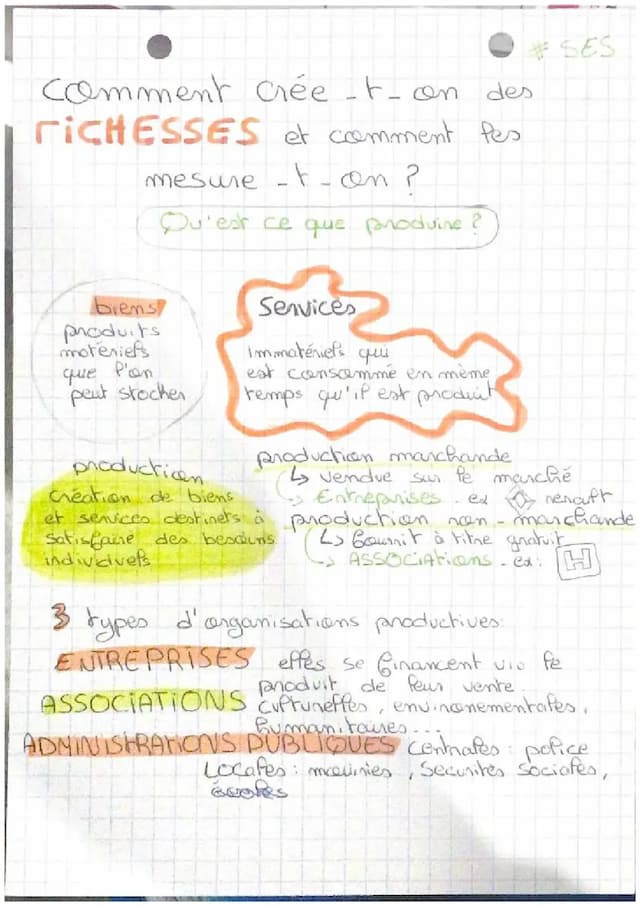 # SES
Comment crée-t-on des
RiCHESSES et comment les
mesure-t-on ?
Qu'est ce que produire ?
biens
produits
matériels
que l'on
peut stocker
Services
Immatériels qui
est consommé en même
temps qu'il est produit
production
création de biens
et services destinets à
satisfaire des besoins
individuels
production marchande
↳ vendue sur le marché
↳ Entreprises. ex renault
production non-marchande
↳ fournit à titre gratuit
↳ ASSOCiATiONS. ex: H
3 types d'organisations productives:
ENTREPRISES elles se financent via le
produit de leur vente
ASSOCIATIONS culturelles, environementales,
humanitaires...
ADMINISTRATiONS PUBLIQUES centrales : police
Locales : mairies, Securités sociales,
écoles